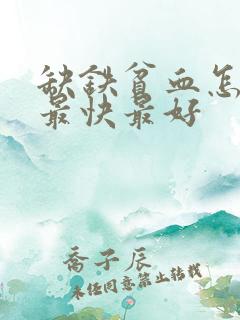 缺铁贫血怎
最快最好
喬子辰
未经同意禁止转载